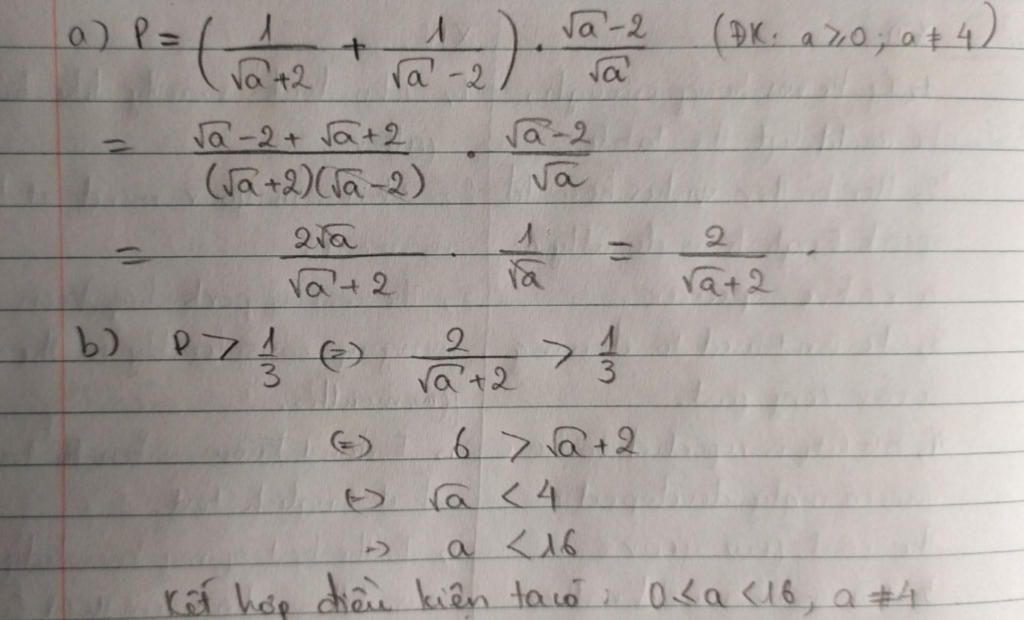 a) P = (1/(√a+2) + 1/(√a-2)) · (√a-2)/√a (ĐK: a ≥ 0; a ≠ 4)
= (√a-2+√a+2)/((√a+2)(√a-2)) · (√a-2)/√a
= 2√a/(√a+2) · 1/√a = 2/(√a+2) .
b) P > 1/3 (=) 2/(√a+2) > 1/3
(=) 6 > √a+2
(=) √a < 4
=) a < 16
Kết hợp điều kiện ta có: 0 < a < 16, a ≠ 4